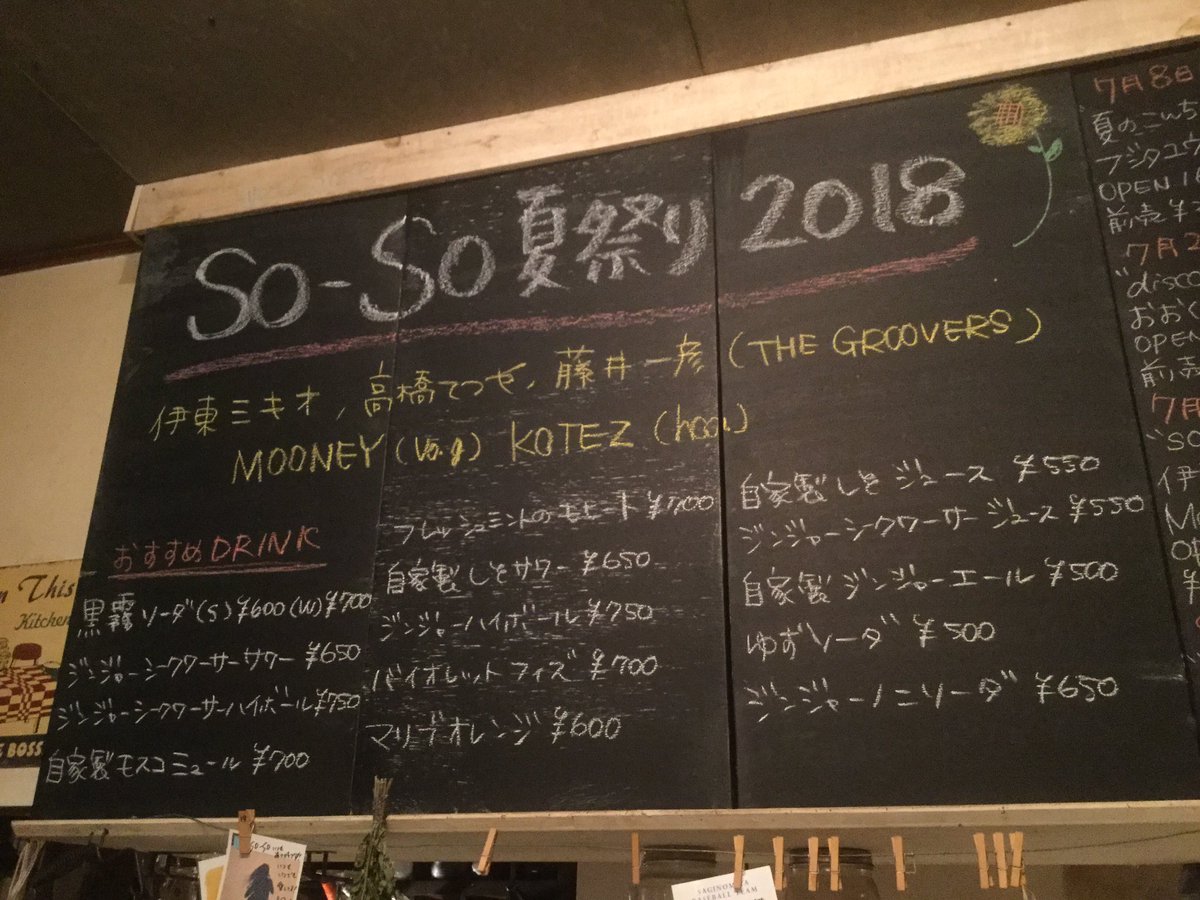 So-So 夏祭り 2018
伊東ミキオ, 高橋てつや, 藤井一彦 (THE GROOVERS)
MOONEY (Vo.g) KOTEZ (hca)
おすすめDRINK
黒霧ソーダ(S)¥600(W)¥700
ジンジャーシークワーサーサワー ¥650
ジンジャーシークワーサーハイボール¥750
自家製モスコミュール ¥700
フレッシュミントのモヒート ¥700
自家製しそサワー ¥650
ジンジャーハイボール ¥750
バイオレットフィズ ¥700
マリブオレンジ ¥600
自家製しそジュース ¥550
ジンジャーシークワーサージュース ¥550
自家製ジンジャーエール ¥500
ゆずソーダ ¥500
ジンジャーノニソーダ ¥650
7月8日
夏のこんち
フジタユウ
OPEN 1
前売 ¥
7月2
"disco
おおく
OPEN
前売
7月
"SO
伊
M
OP
¥
This
Kitchen
BOSS
SO-SO
SAGINOMIYA
BASEBALL TEAM